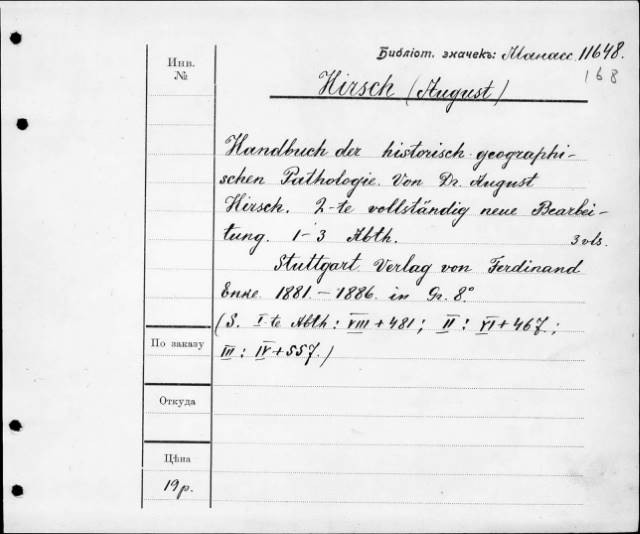 Библіот. значекъ: Манасс. 11648.
168
Инв.
№
Hirsch (August)
Handbuch der historisch-geographi-
schen Pathologie. Von Dr. August
Hirsch. 2-te vollständig neue Bearbei-
tung. 1-3 Abth. 3 vls.
Stuttgart. Verlag von Ferdinand
Enke. 1881.-1886. in Gr. 8°
(S. I te Abth: VIII + 481; II: VI + 467.;
III: IV + 557.)
По заказу
Откуда
Цѣна
19 р.